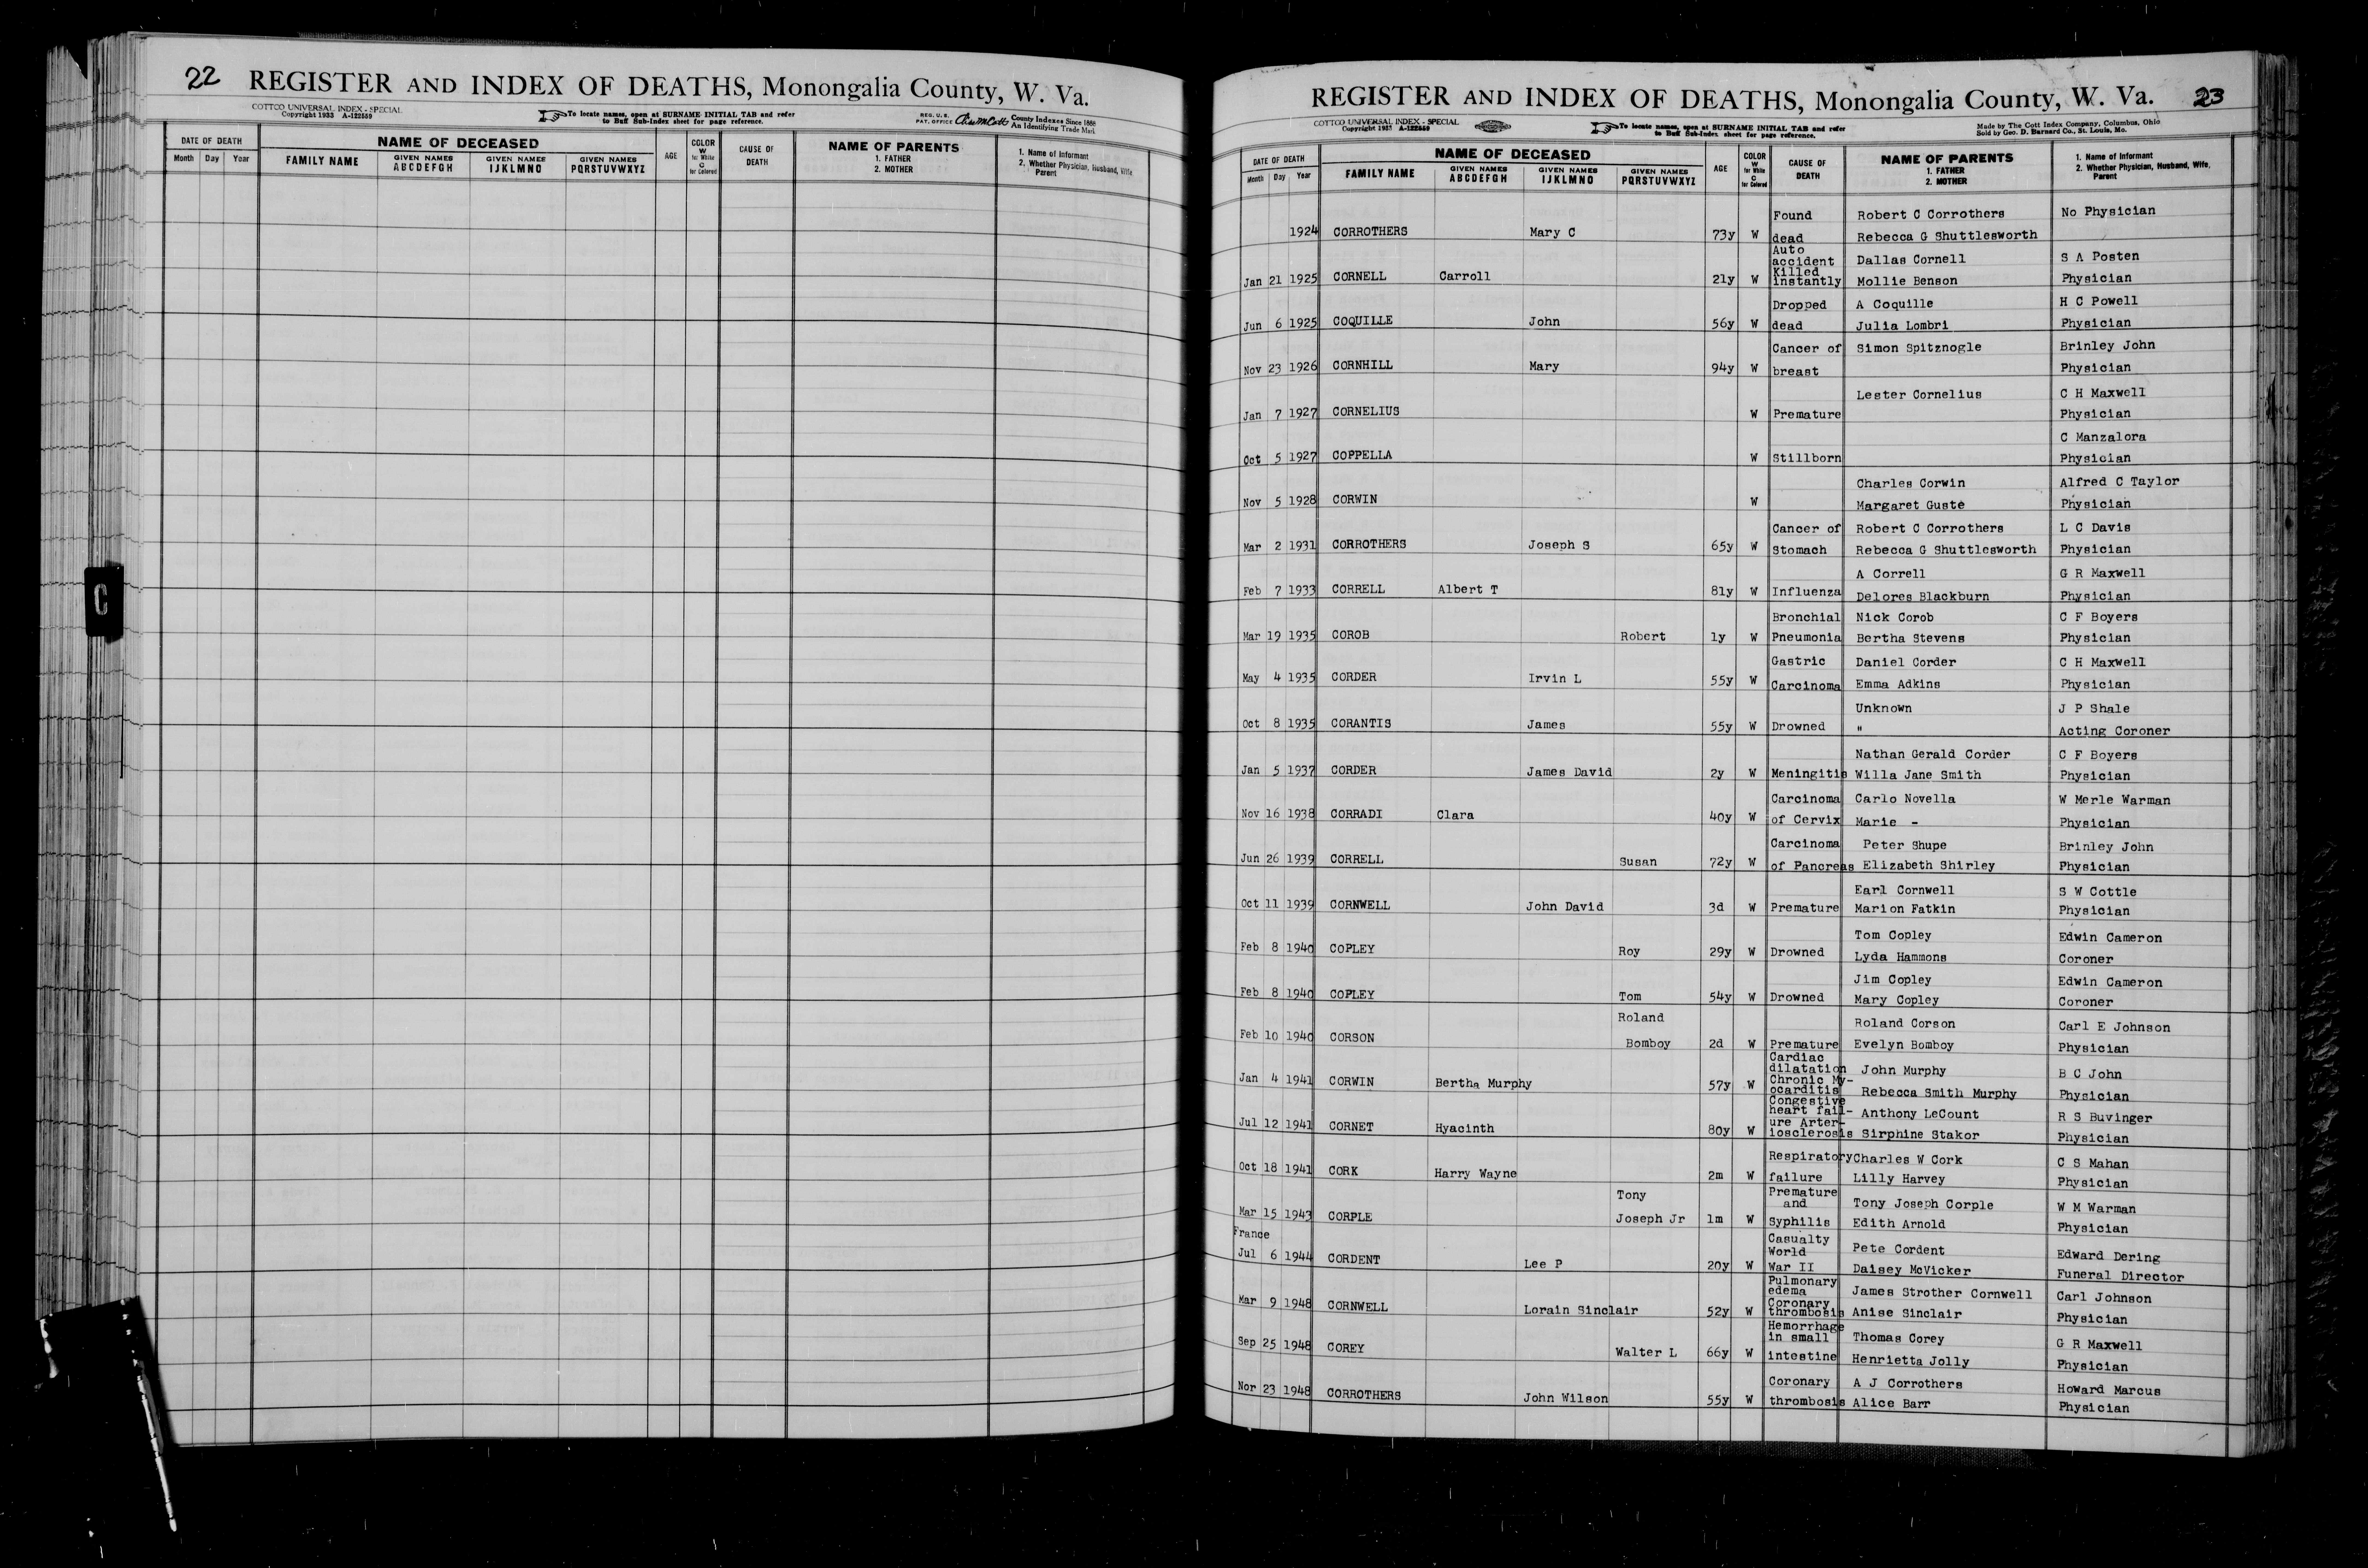 22 REGISTER AND INDEX OF DEATHS, Monongalia County, W. Va.
COTTCO UNIVERSAL INDEX - SPECIAL
Copyright 1933 A-122559
To locate names, open at SURNAME INITIAL TAB and refer
to Buff Sub-Index sheet for page reference.
REG. U. S.
PAT. OFFICE
County Indexes Since 1888
An Identifying Trade Mark
DATE OF DEATH
Month Day Year
NAME OF DECEASED
FAMILY NAME
GIVEN NAMES
ABCDEFGH
GIVEN NAMES
IJKLMNO
GIVEN NAMES
PQRSTUVWXYZ
AGE
COLOR
W
for White
C
for Colored
CAUSE OF
DEATH
NAME OF PARENTS
1. FATHER
2. MOTHER
1. Name of Informant
2. Whether Physician, Husband, Wife,
Parent
C
REGISTER AND INDEX OF DEATHS, Monongalia County, W. Va. 23
COTTCO UNIVERSAL INDEX - SPECIAL
Copyright 1933 A-122559
To locate names, open at SURNAME INITIAL TAB and refer
to Buff Sub-Index sheet for page reference.
Made by The Cott Index Company, Columbus, Ohio
Sold by Geo. D. Barnard Co., St. Louis, Mo.
DATE OF DEATH
Month Day Year
NAME OF DECEASED
FAMILY NAME
GIVEN NAMES
ABCDEFGH
GIVEN NAMES
IJKLMNO
GIVEN NAMES
PQRSTUVWXYZ
AGE
COLOR
W
for White
C
for Colored
CAUSE OF
DEATH
NAME OF PARENTS
1. FATHER
2. MOTHER
1. Name of Informant
2. Whether Physician, Husband, Wife,
Parent
Found Robert C Corrothers No Physician
1924 CORROTHERS Mary C 73y W dead Rebecca G Shuttlesworth
Auto
accident Dallas Cornell S A Posten
Killed
Jan 21 1925 CORNELL Carroll 21y W instantly Mollie Benson Physician
Dropped A Coquille H C Powell
Jun 6 1925 COQUILLE John 56y W dead Julia Lombri Physician
Cancer of Simon Spitznogle Brinley John
Nov 23 1926 CORNHILL Mary 94y W breast Physician
Lester Cornelius C H Maxwell
Jan 7 1927 CORNELIUS W Premature Physician
C Manzalora
Oct 5 1927 COPPELLA W Stillborn Physician
Charles Corwin Alfred C Taylor
Nov 5 1928 CORWIN W Margaret Guste Physician
Cancer of Robert C Corrothers L C Davis
Mar 2 1931 CORROTHERS Joseph S 65y W Stomach Rebecca G Shuttlesworth Physician
A Correll G R Maxwell
Feb 7 1933 CORRELL Albert T 81y W Influenza Delores Blackburn Physician
Bronchial Nick Corob C F Boyers
Mar 19 1935 COROB Robert 1y W Pneumonia Bertha Stevens Physician
Gastric Daniel Corder C H Maxwell
May 4 1935 CORDER Irvin L 55y W Carcinoma Emma Adkins Physician
Unknown J P Shale
Oct 8 1935 CORANTIS James 55y W Drowned " Acting Coroner
Nathan Gerald Corder C F Boyers
Jan 5 1937 CORDER James David 2y W Meningitis Willa Jane Smith Physician
Carcinoma Carlo Novella W Merle Warman
Nov 16 1938 CORRADI Clara 40y W of Cervix Marie - Physician
Carcinoma Peter Shupe Brinley John
Jun 26 1939 CORRELL Susan 72y W of Pancreas Elizabeth Shirley Physician
Earl Cornwell S W Cottle
Oct 11 1939 CORNWELL John David 3d W Premature Marion Fatkin Physician
Tom Copley Edwin Cameron
Feb 8 1940 COPLEY Roy 29y W Drowned Lyda Hammons Coroner
Jim Copley Edwin Cameron
Feb 8 1940 COPLEY Tom 54y W Drowned Mary Copley Coroner
Roland Roland Corson Carl E Johnson
Feb 10 1940 CORSON Bomboy 2d W Premature Evelyn Bomboy Physician
Cardiac
dilatation John Murphy B C John
Chronic My-
Jan 4 1941 CORWIN Bertha Murphy 57y W ocarditis Rebecca Smith Murphy Physician
Congestive
heart fail- Anthony LeCount R S Buvinger
ure Arter-
Jul 12 1941 CORNET Hyacinth 80y W iosclerosis Sirphine Stakor Physician
Respiratory Charles W Cork C S Mahan
Oct 18 1941 CORK Harry Wayne 2m W failure Lilly Harvey Physician
Premature
Tony and Tony Joseph Corple W M Warman
Mar 15 1943 CORPLE Joseph Jr 1m W Syphilis Edith Arnold Physician
France Casualty
World Pete Cordent Edward Dering
Jul 6 1944 CORDENT Lee P 20y W War II Daisey McVicker Funeral Director
Pulmonary
edema James Strother Cornwell Carl Johnson
Coronary
Mar 9 1948 CORNWELL Lorain Sinclair 52y W thrombosis Anise Sinclair Physician
Hemorrhage
in small Thomas Corey G R Maxwell
Sep 25 1948 COREY Walter L 66y W intestine Henrietta Jolly Physician
Coronary A J Corrothers Howard Marcus
Nor 23 1948 CORROTHERS John Wilson 55y W thrombosis Alice Barr Physician